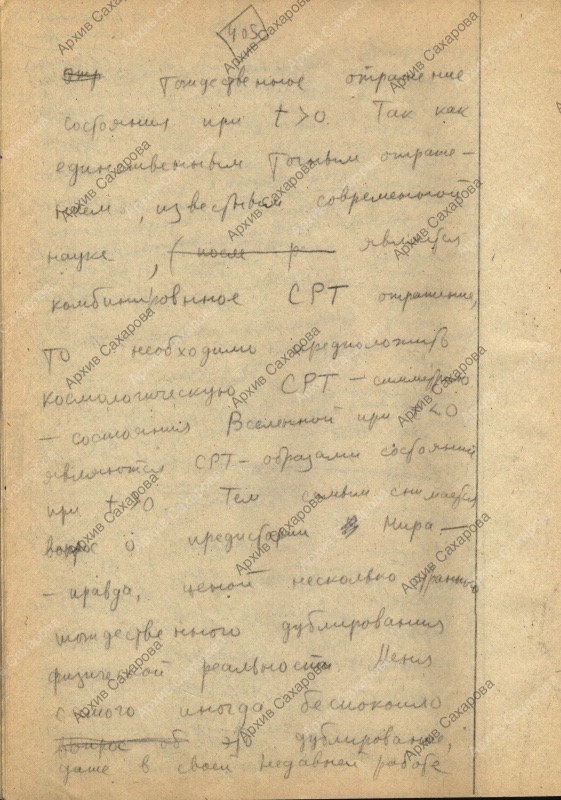 405
Это тождественное отражение
состояния при t > 0. Так как
единственным точным отраже-
нием, известным современной
науке, (после р является
комбинированное СРТ отражение,
то необходимо предположить
космологическую СРТ – симметрию
– состояния Вселенной при t < 0
являются СРТ – образами состояний
при t > 0. Тем самым снимается
вопрос о предистории Мира –
– правда, ценой несколько странного
тождественного дублирования
физической реальности. Меня
самого иногда беспокоило
вопрос об это дублирование,
даже в своей недавней работе